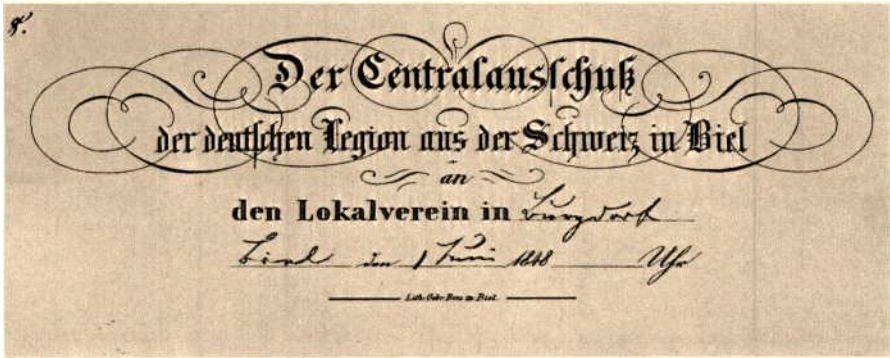 8.
Der Centralausschuß
der deutschen Legion aus der Schweiz in Biel
an
den Lokalverein in Burgdorf
Biel den 1 Juni 1848 Uhr
Lith. Gebr. in Biel.